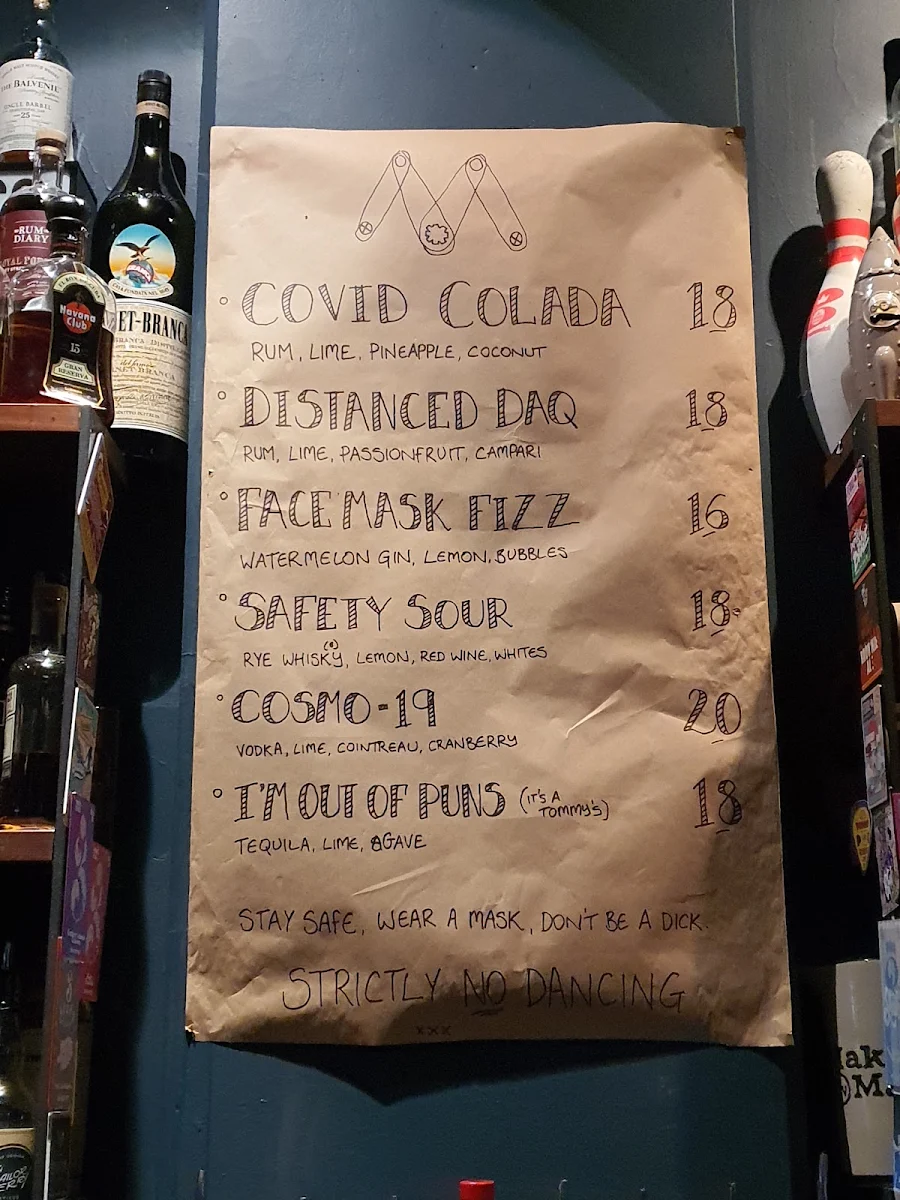 THE BALVENIE
SINGLE BARREL
25
RUM
DIARY
Havana
Club
15
GRAN
RESERVA
ET-BRANCA
COVID COLADA 18
RUM, LIME, PINEAPPLE, COCONUT
DISTANCED DAQ 18
RUM, LIME, PASSIONFRUIT, CAMPARI
FACE MASK FIZZ 16
WATERMELON GIN, LEMON, BUBBLES
SAFETY SOUR 18
RYE WHISK(e)Y, LEMON, RED WINE, WHITES
COSMO-19 20
VODKA, LIME, COINTREAU, CRANBERRY
I'M OUT OF PUNS (IT'S A TOMMY'S) 18
TEQUILA, LIME, AGAVE
STAY SAFE, WEAR A MASK, DON'T BE A DICK.
STRICTLY NO DANCING
xxx